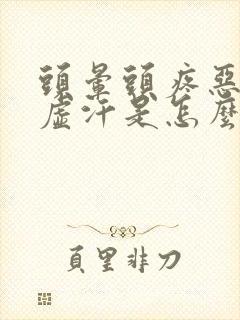 頭暈頭疼惡
虛汗是怎麼
頁里非刀